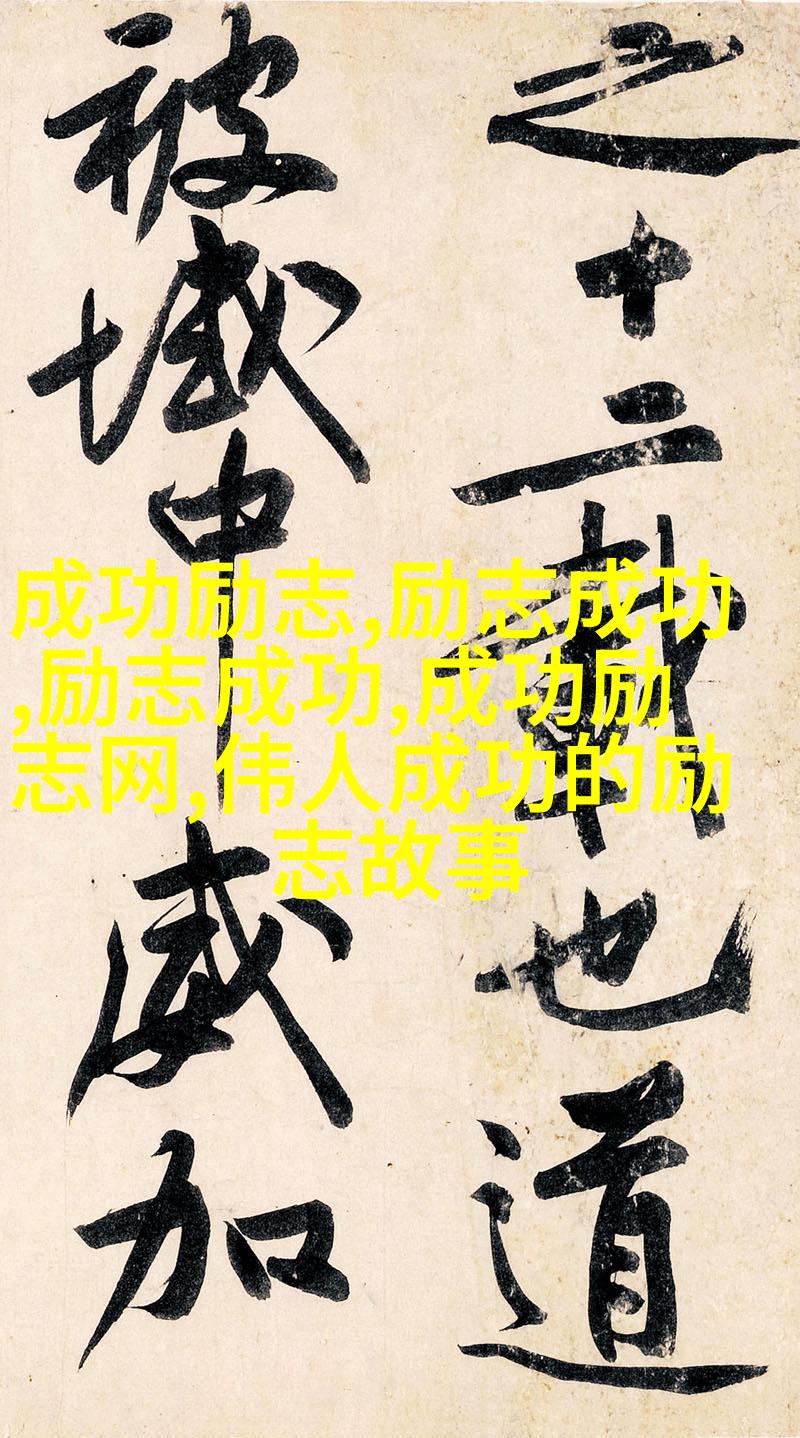 之十二載也道
被域中威加
成功励志,励志成功
,励志成功,成功励
志网,伟人成功的励
志故事